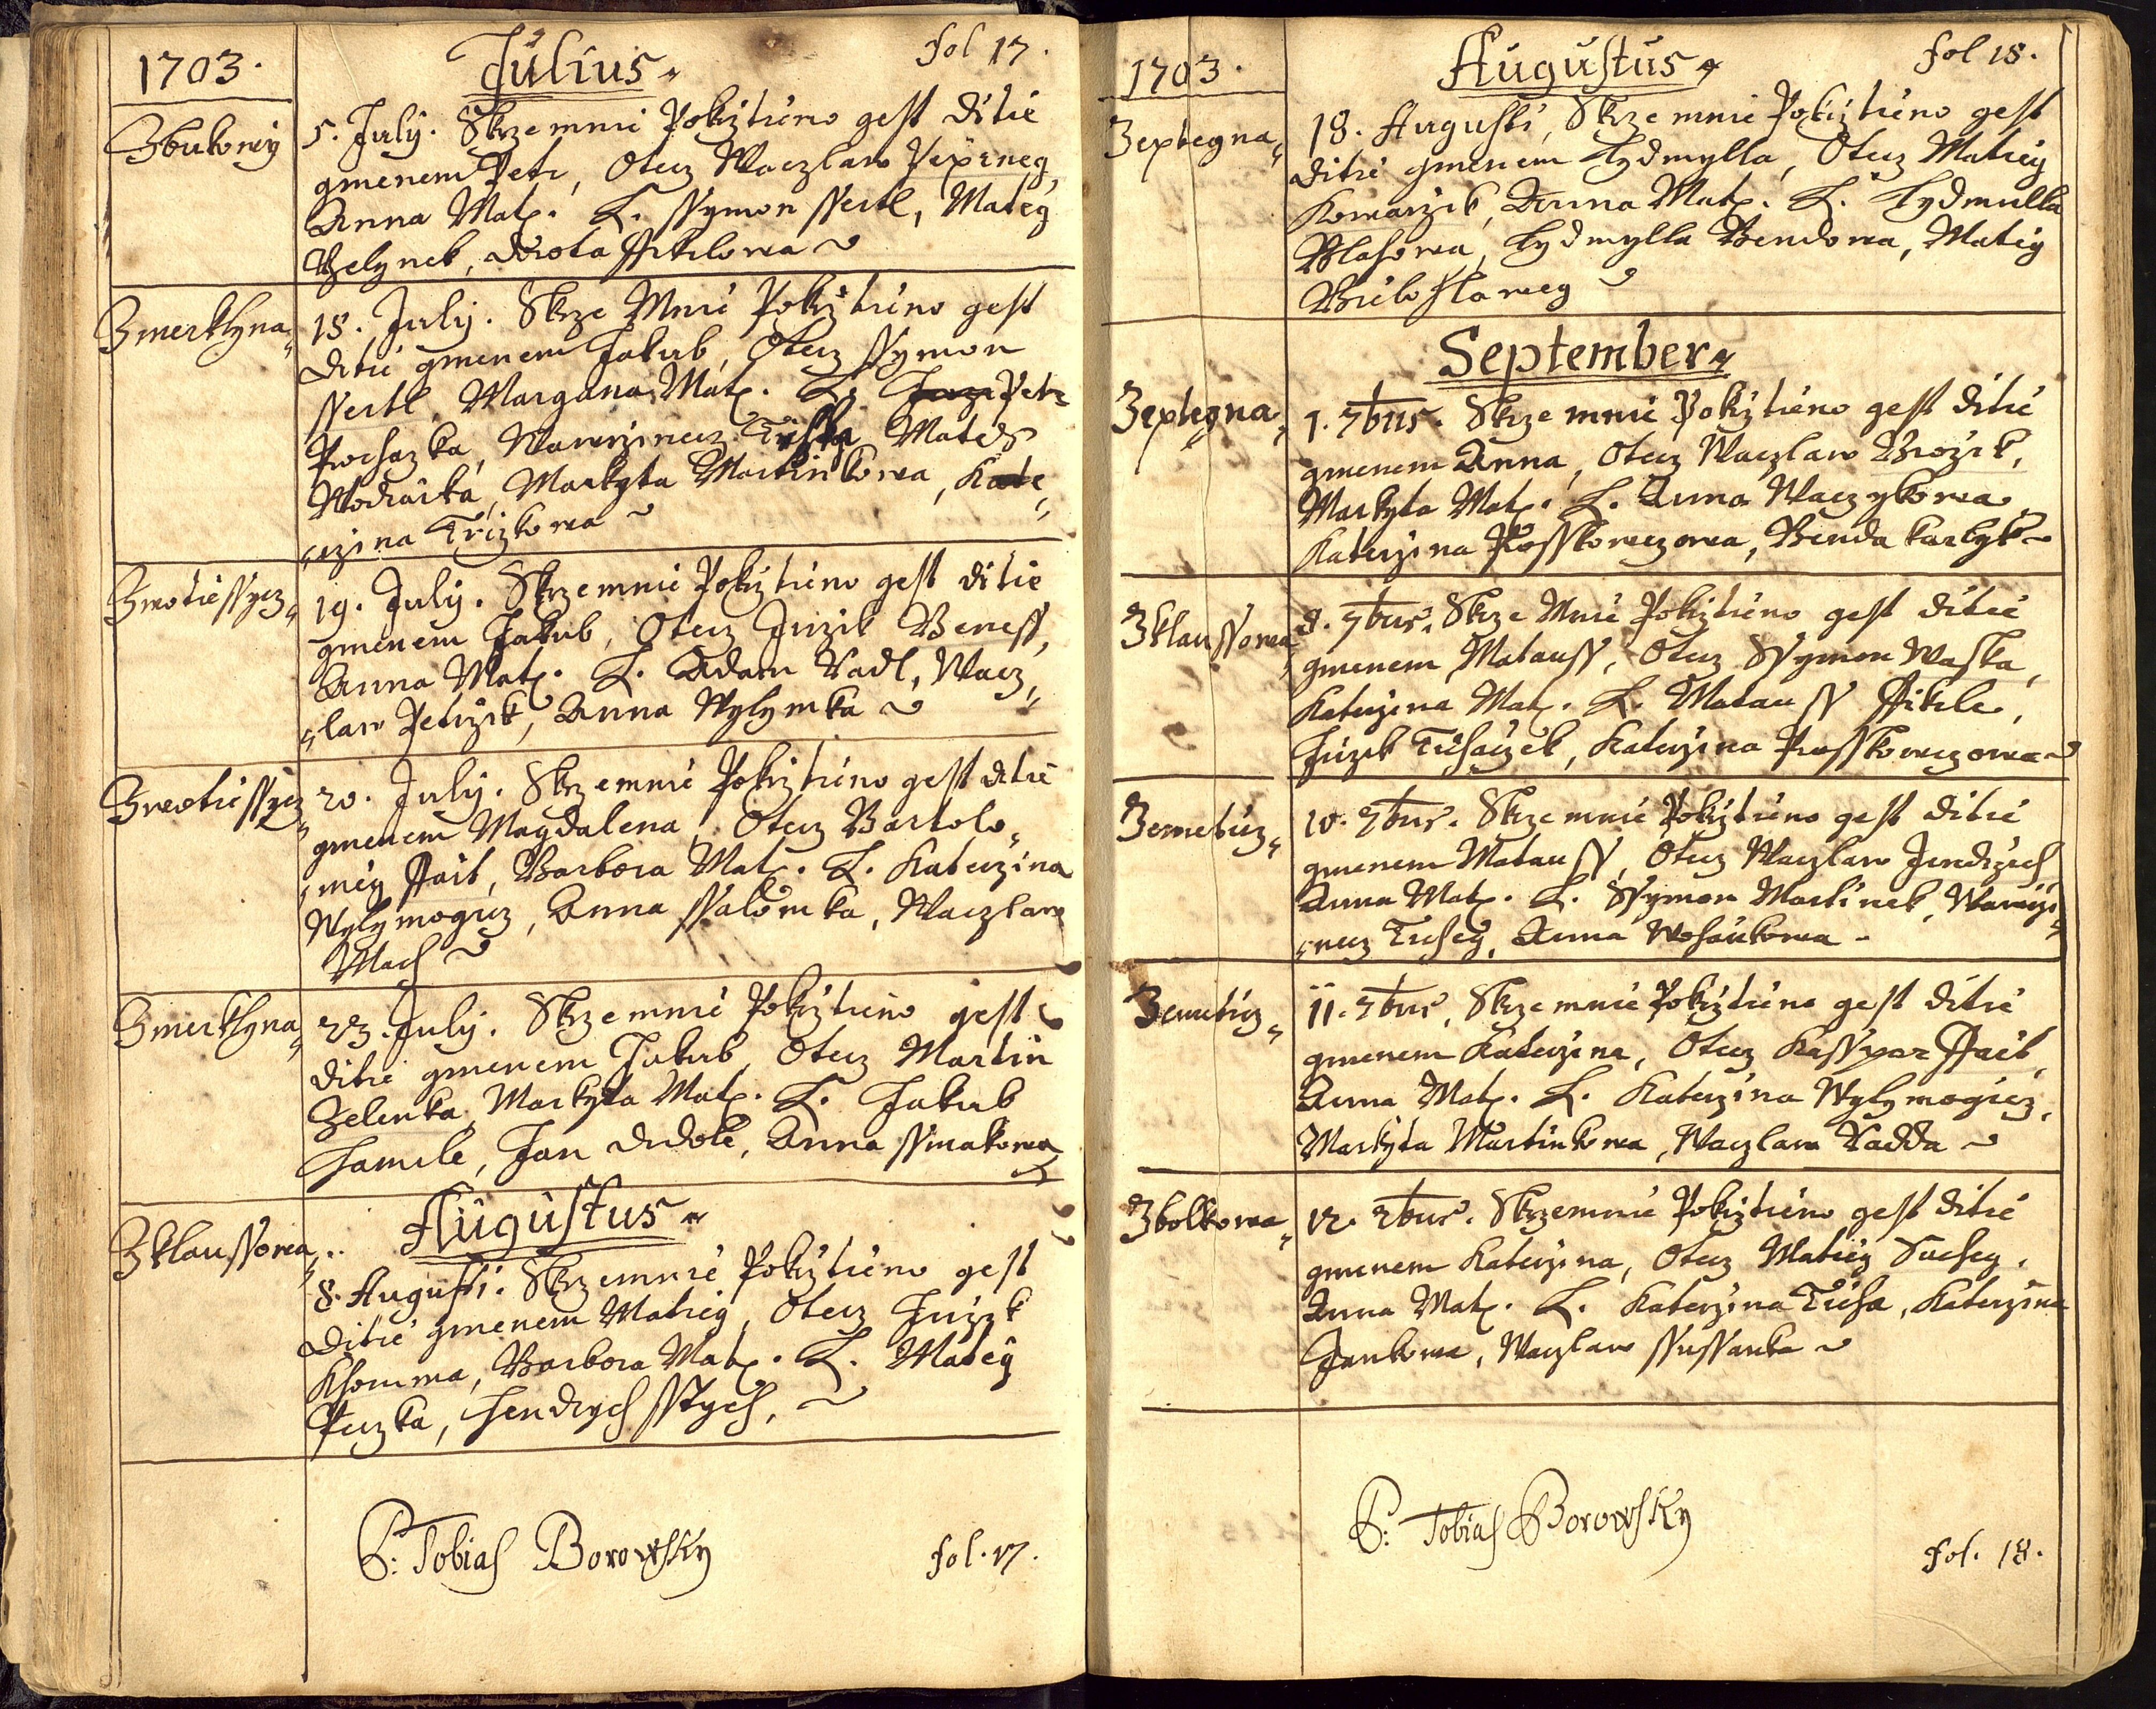 1703.
Julius
fol 17.
Zbukowy
5. July. Skrzemnie Pokrztieno gest ditie
gmenem Petr, Otecz Waczlaw Pexineg,
Anna Mat. L. Ssymon Ssertl, Mateg
Zelynek, Dorota
Zmerklyna
18. July. Skrze Mnie Pokrztieno gest
ditie gmenem Jakub, Otecz Ssymon
Ssertl, Margana Mat. L. Petr
Prochazka, Wawrzinecz Mateg
Wodraska, Markyta Martinkowa, Kate
rzina Trizkowa
Zwotiessycz
19. July. Skrzemnie Pokrztieno gest ditie
gmenem Jakub, Otecz Jirzik Beness,
Anna Mat. L. Adam Kadl, Wacz
law Petrzik, Anna Wylymka
Zwotiessycz
20. July. Skrzemnie Pokrztieno gest ditie
gmenem Magdalena, Otecz Bartolo
meg Ffait, Barbora Mat. L. Katerzina
Wylymogicz, Anna Ssalomka, Waczlaw
Mach
Zmerklyna
23. July. Skrzemnie Pokrztieno gest
ditie gmenem Jakub, Otecz Martin
Zelenka, Markyta Mat. L. Jakub
Hamele, Jan Dudole, Anna Ssimakowa
Zklaussowa
Augustus
8. Augusti. Skrzemnie Pokrztieno gest
ditie gmenem Matieg, Otecz Jirzik
Khomma, Barbora Mat. L. Mateg
Peczka, Hendrych Sstych,
P: Tobias Borowsky
fol. 17.
1703.
Augustus
fol 18.
Zeptegna
18. Augusti, Skrzemnie Pokrztieno gest
ditie gmenem Lydmylla, Otecz Matieg
Komarzik, Anna Mat. L. Lydmulla
Wlahowa, Lydmylla Bendowa, Matieg
Bielohlaweg
September
Zeptegna
1. 7bris. Skrzemnie Pokrztieno gest ditie
gmenem Anna, Otecz Waczlaw Brozik,
Markyta Mat. L. Anna Waczykowa
Katerzina Prosskowczowa, Benda karlyk
Zklaussowa
9. 7bris. Skrze Mnie Pokrztieno gest ditie
gmenem Matauss, Otecz Ssymon Waska,
Katerzina Mat. L. Matauss Ffikele,
Jirzik Tichaczek, Katerzina Prosskowczowa
Zemeticz
10. 7bris. Skrzemnie Pokrztieno gest ditie
gmenem Matauss, Otecz Waczlaw Jendrzich
Anna Mat. L. Ssymon Martinek, Wawrzi
necz Tichey, Anna Wohankowa
Zemeticz
11. 7bris, Skrzemnie Pokrztieno gest ditie
gmenem Katerzina, Otecz Kassper Ffait,
Anna Mat. L. Katerzina Wylymogicz,
Markyta Martinkowa, Waczlaw Kadda
Zbolkowa
12. 7bris. Skrzemnie Pokrztieno gest ditie
gmenem Katerzina, Otecz Matieg Suchey,
Anna Mat. L. Katerzina Ticha, Katerzina
Jankowa, Waczlaw Ssussanka
P: Tobias Borowsky
fol. 18.